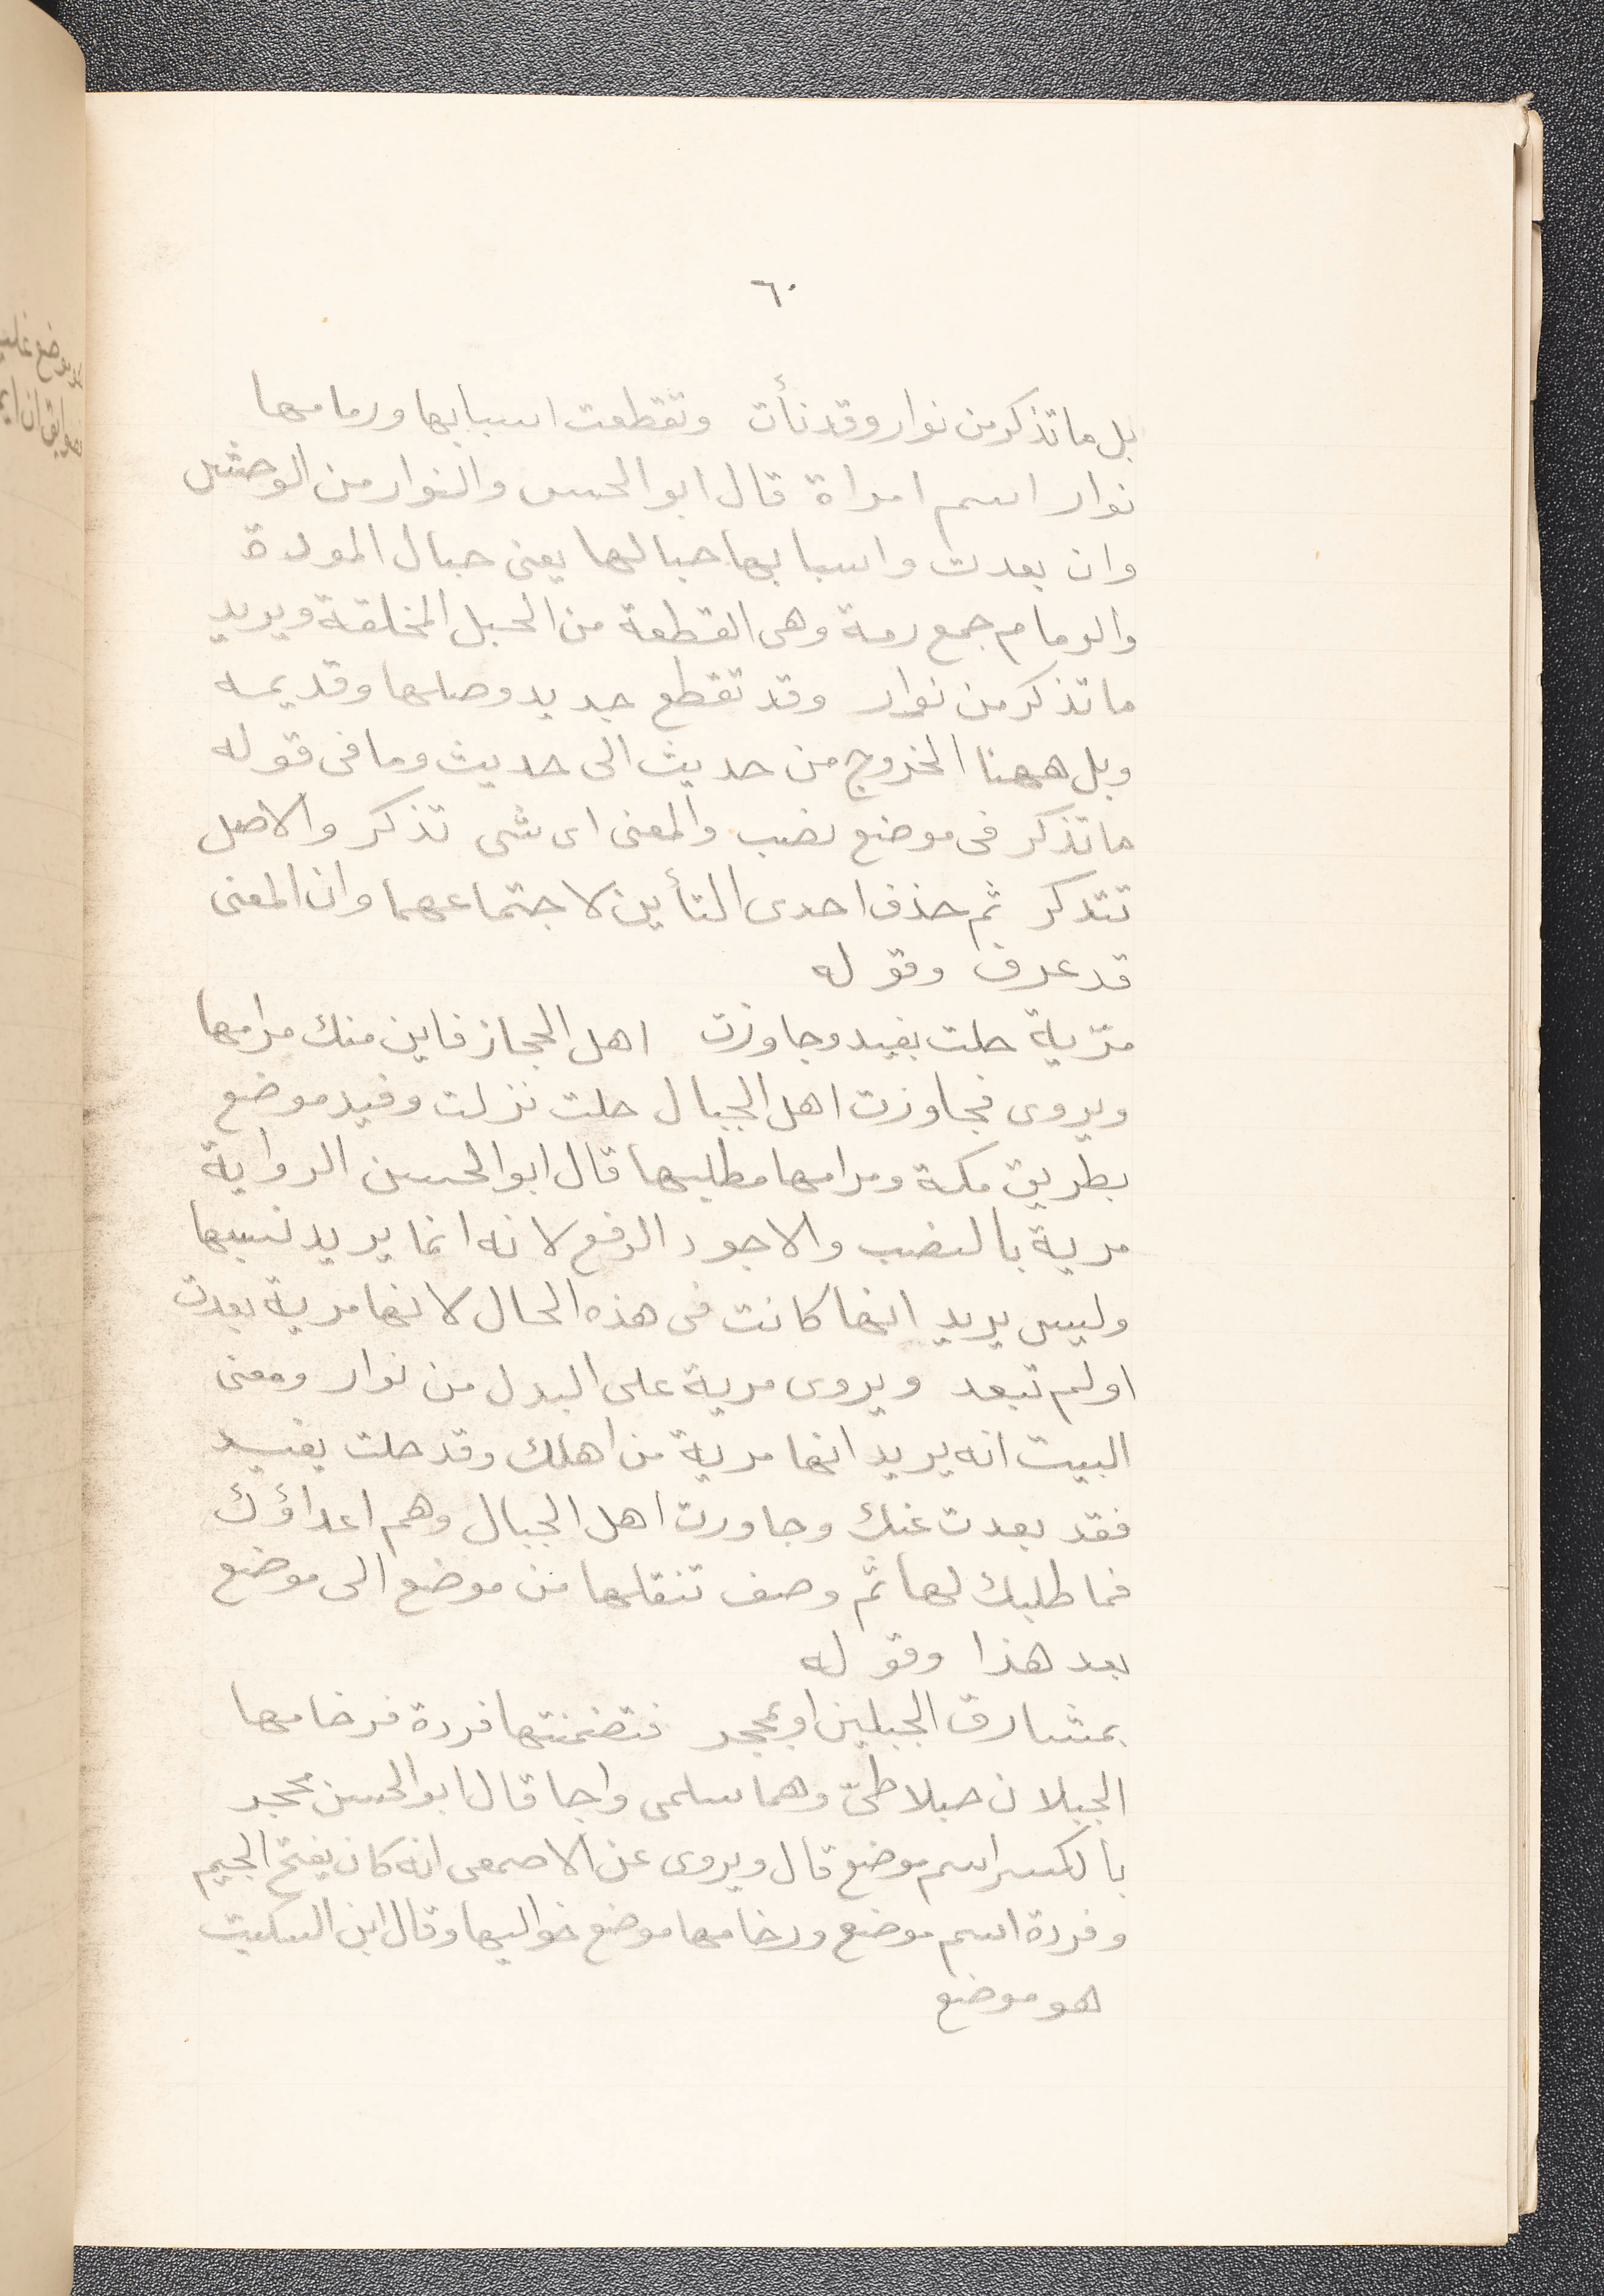 ٦٠
بل ما تذكر من نوار وقد نأت وتقطعت اسبابها ورمامها
نوار اسم امراة قال ابو الحسن والنوار من الوحش
وان بعدت واسبابها حبالها يعنى حبال المودة
والرمام جمع رمة وهى القطعة من الحبل المخلقة ويريد
ما تذكر من نوار وقد تقطع جديد وصلها وقديمه
وبل ههنا الخروج من حديث الى حديث وما فى قوله
ما تذكر فى موضع نصب والمعنى اى شى تذكر والاصل
تتذكر ثم حذف احدى التأين لاجتماعهما وان المعنى
قد عرف وقوله
مرّية حلت بفيد وجاوزت اهل الحجاز فاين منك مرامها
ويروى فجاوزت اهل الجبال حلت نزلت وفيد موضع
بطريق مكة ومرامها مطلبها قال ابو الحسن الرواية
مرية بالنصب والاجود الرفع لانه انما يريد نسبها
وليس يريد انها كانت فى هذه الحال لانها مرية بعدت
اولم تبعد ويروى مرية على البدل من نوار ومعنى
البيت انه يريد انها مرية من اهلك وقد حلت بفيد
فقد بعدت عنك وجاورت اهل الجبال وهم اعداؤك
فما طلبك لها ثم وصف تنقلها من موضع الى موضع
بعد هذا وقوله
بمشارق الجبلين او بمحجر فتضمنتها فردة فرخامها
الجبلان جبلا طىّ وهما سلمى واجا قال ابو الحسن محجر
بالكسر اسم موضع قال ويروى عن الاصمعى انه كان يفتح الجيم
وفردة اسم موضع ورخامها موضع حواليها وقال ابن السكيت
هو موضع